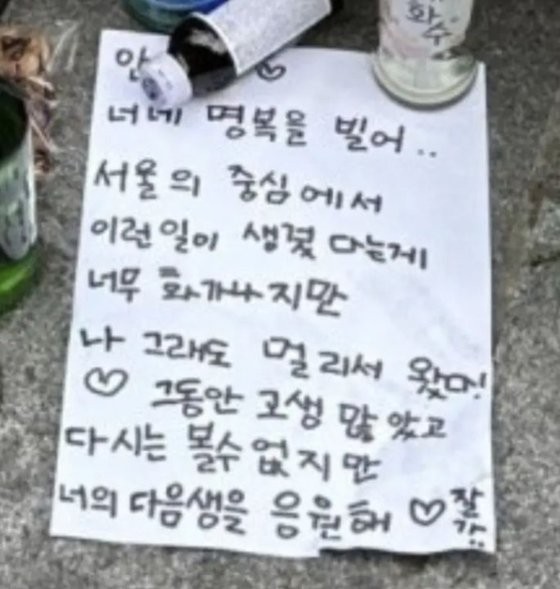 화수
안 ♡
너네 명복을 빌어..
서울의 중심에서
이런일이 생겼다는게
너무 화가나지만
나 그래도 멀리서 왔따!
♡ 그동안 고생 많았고
다시는 볼수 없지만
너의 다음생을 응원해 ♡ 잘가..